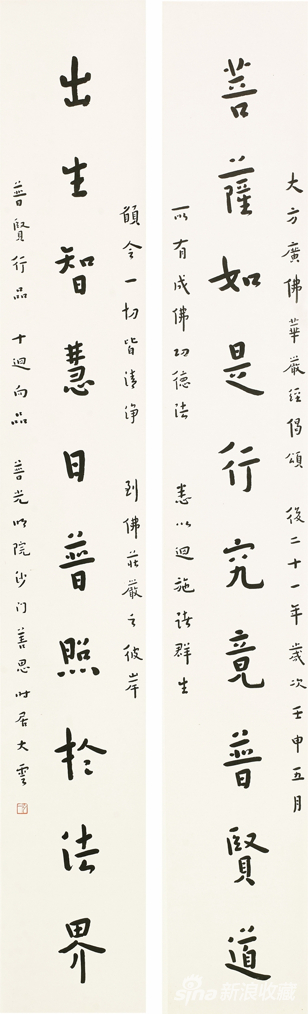 大方廣佛華嚴經偈頌 後二十一年歲次壬申五月
菩薩如是行究竟普賢道
所有成佛功德法 悉以迴施諸群生
願令一切皆清淨 到佛莊嚴之彼岸
出生智慧日普照於法界
普賢行品 十迴向品 善光明院沙门善思时居大雲
sina新浪收藏